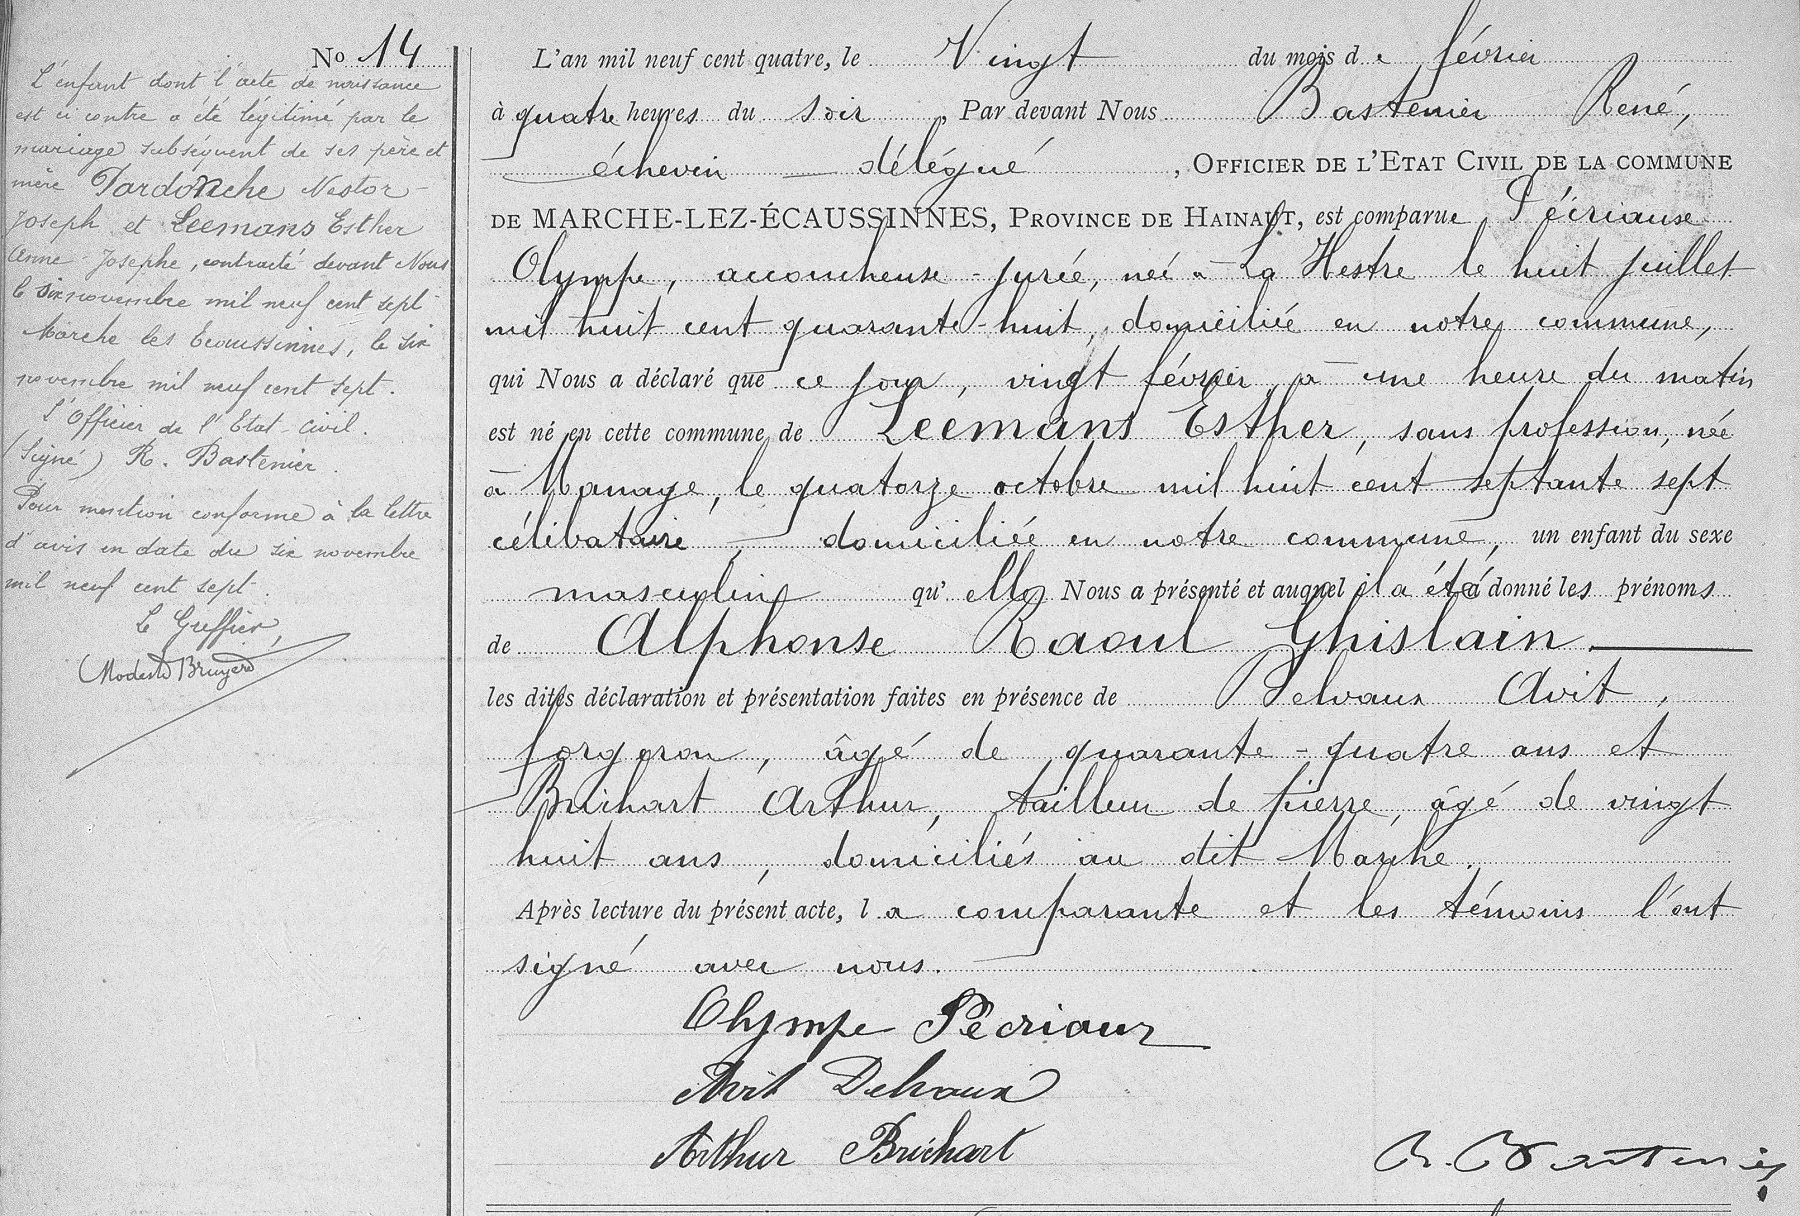 No 14
L'enfant dont l'acte de naissance
est ci contre a été légitimé par le
mariage subséquent de ses père et
mère Pardonche Nestor-
Joseph et Leemans Esther
Anne-Josephe, contracté devant Nous
le six novembre mil neuf cent sept
Marche lez Ecaussinnes, le six
novembre mil neuf cent sept.
L'Officier de l'Etat-Civil.
(Signé) R. Bastenier.
Pour mention conforme à la lettre
d'avis en date du six novembre
mil neuf cent sept.
Le Greffier,
Modeste Bruyère
L'an mil neuf cent quatre, le Vingt du mois de février
à quatre heures du soir, Par devant Nous Bastenier René,
échevin délégué, OFFICIER DE L'ETAT CIVIL DE LA COMMUNE
DE MARCHE-LEZ-ÉCAUSSINNES, PROVINCE DE HAINAUT, est comparue Pécriaux
Olympe, accoucheuse-jurée, née à La Hestre le huit juillet
mil huit cent quarante-huit, domiciliée en notre commune,
qui Nous a déclaré que ce jour, vingt février, à une heure du matin
est né en cette commune de Leemans Esther, sans profession, née
à Manage, le quatorze octobre mil huit cent septante sept
célibataire, domiciliée en notre commune, un enfant du sexe
masculin qu'elle Nous a présenté et auquel il a été donné les prénoms
de Alphonse Raoul Ghislain.
les dites déclaration et présentation faites en présence de Delvaux Avit,
forgeron, âgé de quarante-quatre ans et
Brichart Arthur, tailleur de pierre, âgé de vingt
huit ans, domiciliés au dit Marche.
Après lecture du présent acte, la comparante et les témoins l'ont
signé avec nous.
Olympe Pécriaux
Avit Delvaux
Arthur Brichart
R. Bastenier